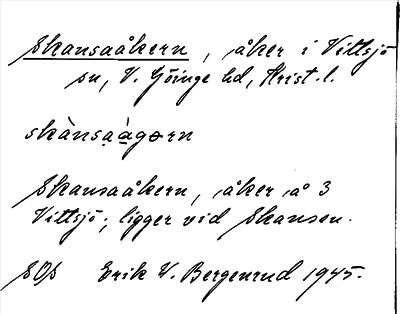 Skansaåkern, åker i Vittsjö
sn, V. Göinge hd, Krist. l.
skànsaàgɵrn
Skansaåkern, åker å 3
Vittsjö; ligger vid Skansen.
SOS Erik W. Bergenrud 1945.